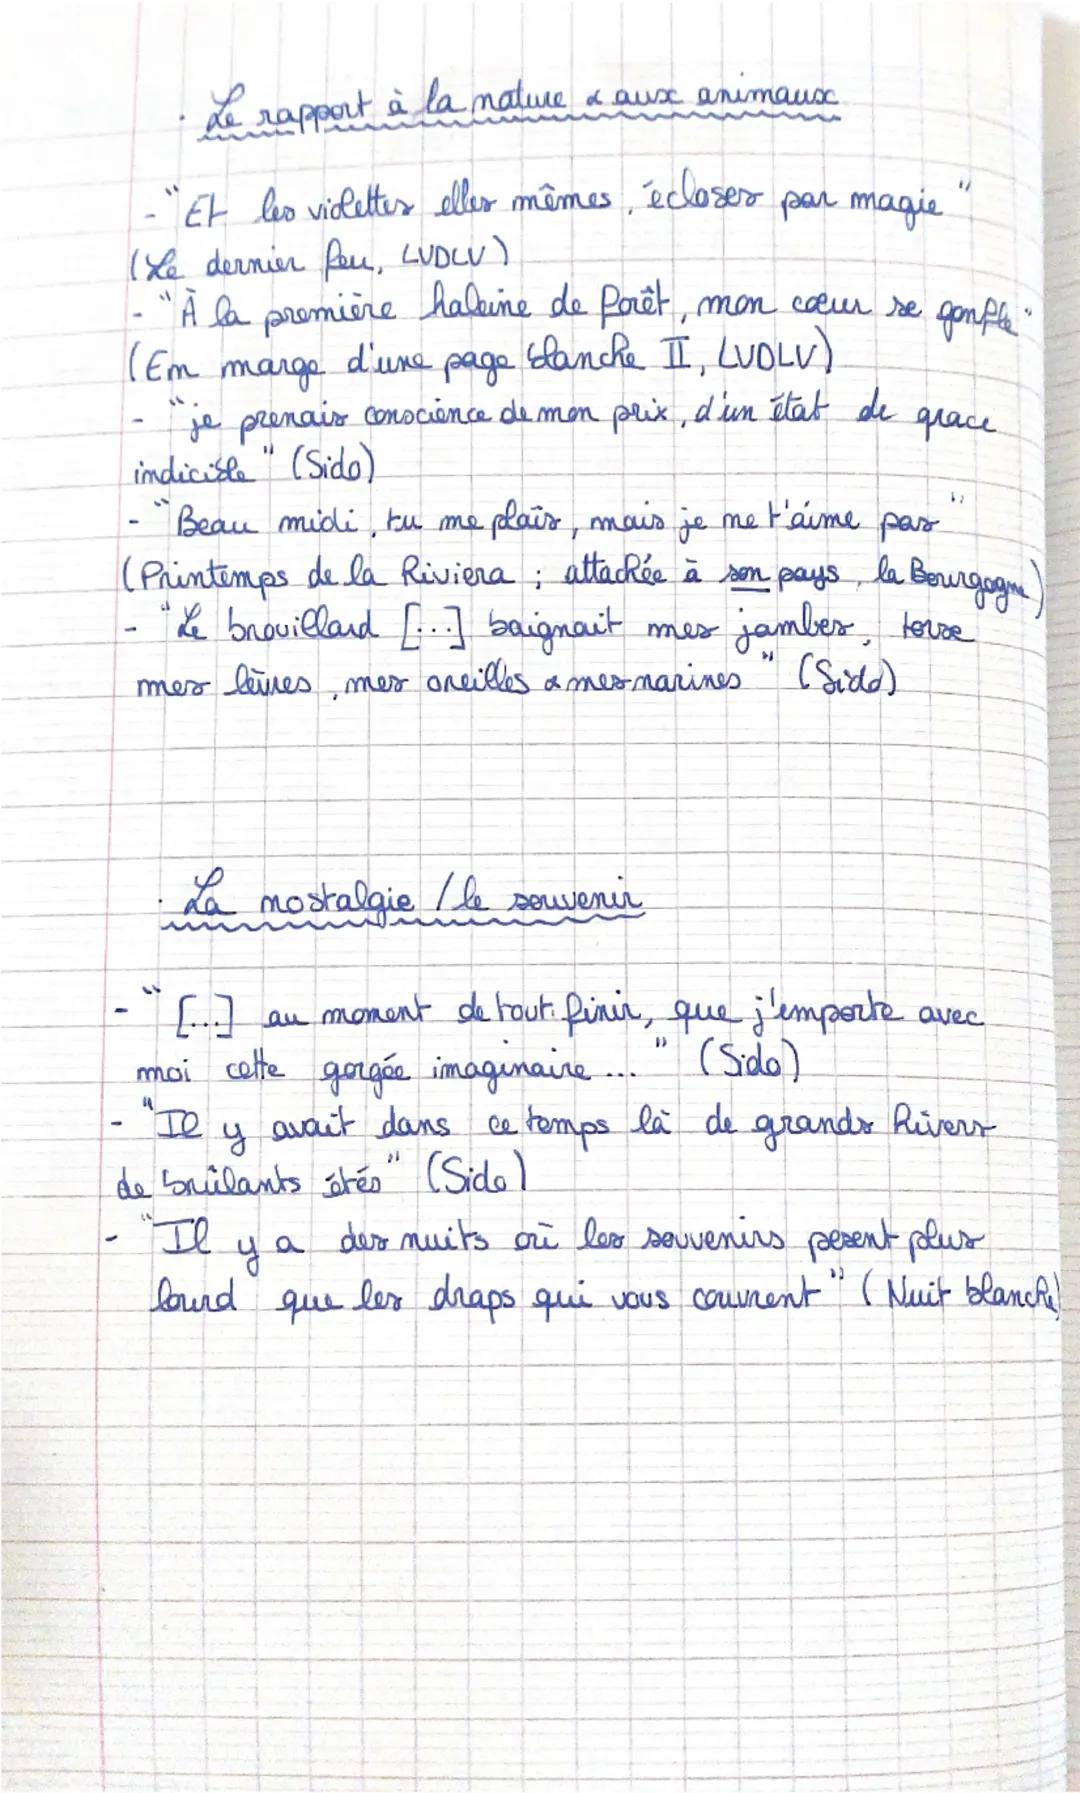 . Le rapport à la nature & aux animaux
- "Et les violettes elles mêmes, écloses par magie"
(Le dernier feu, LVDLV)
- "À la première haleine de forêt, mon cœur se gonfle"
(En marge d'une page blanche II, LVDLV)
- "je prenais conscience de mon prix, d'un état de grace
indicible" (Sido)
- "Beau midi, tu me plais, mais je ne t'aime pas"
(Printemps de la Riviera ; attachée à son pays, la Bourgogne)
- "Le brouillard [...] baignait mes jambes,
mes lèvres, mes oreilles & mes narines" (Sido)
. La nostalgie / le souvenir
- "[...] au moment de tout finir, que j'emporte avec
moi cette gorgée imaginaire ..." (Sido)
- "Il y avait dans ce temps là de grands hivers
de brûlants étés" (Sido)
- "Il y a des nuits où les souvenirs pesent plus
lourd que les draps qui vous couvrent" (Nuit blanche)